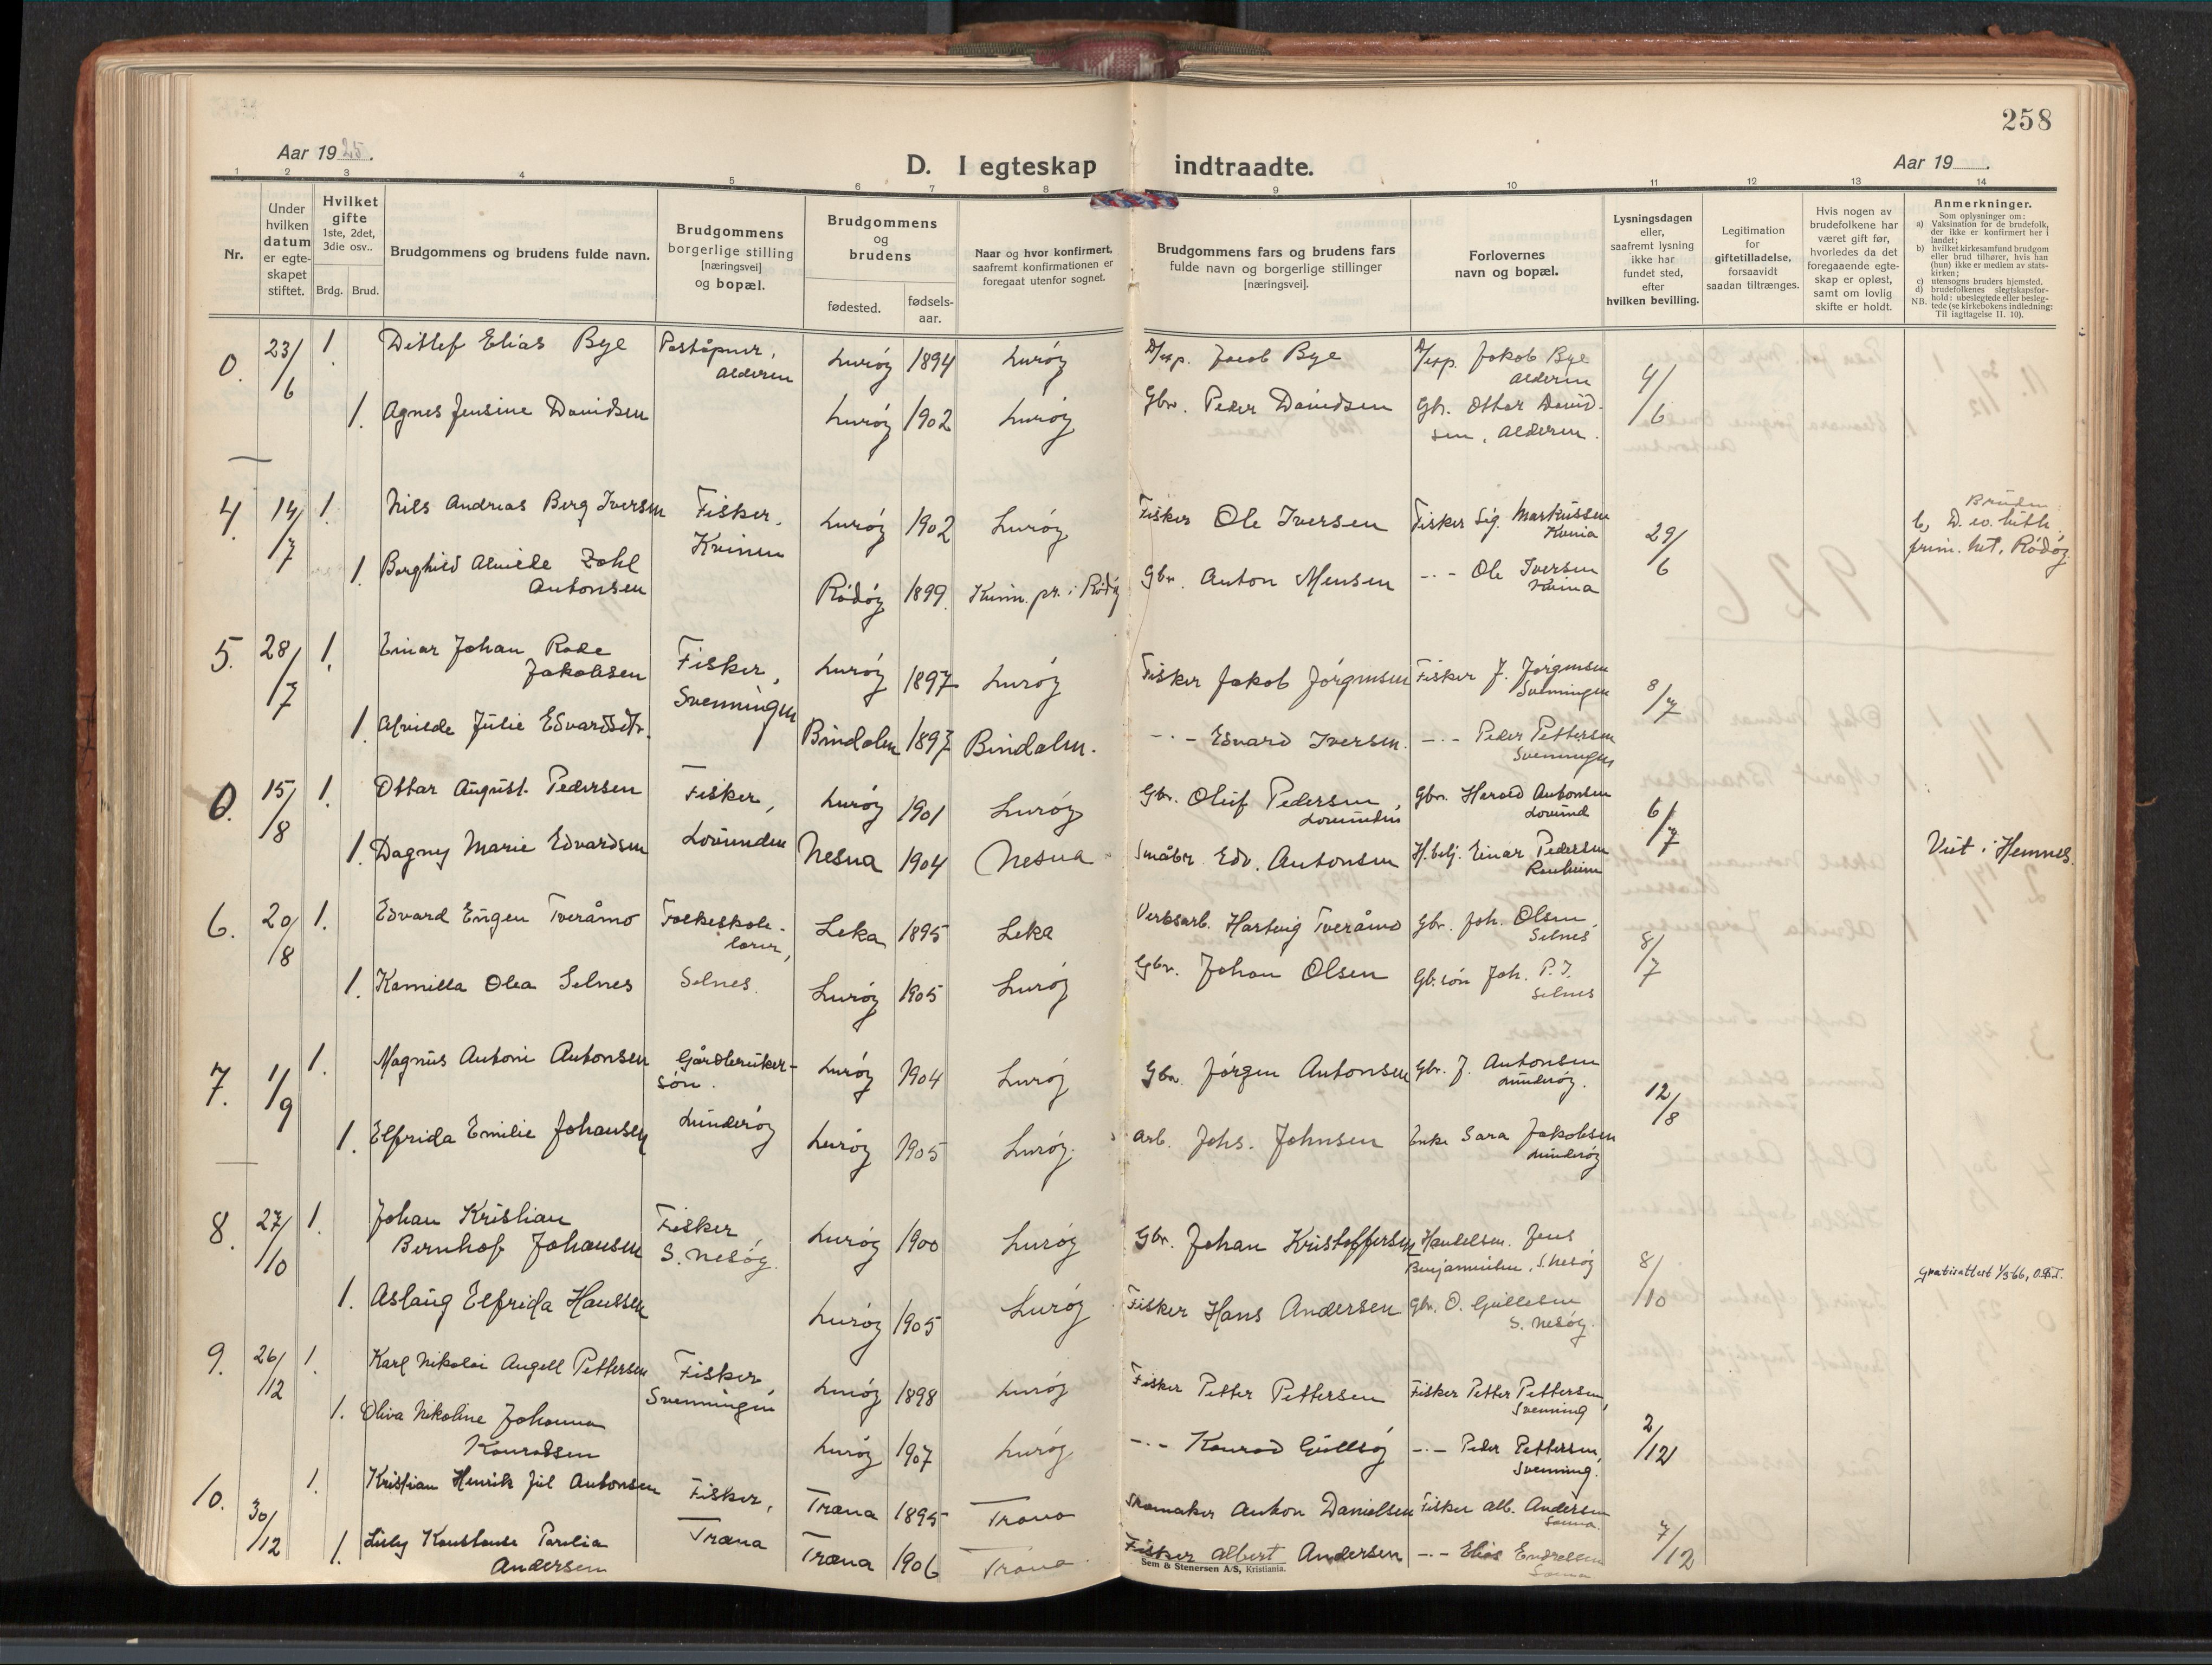 258
Aar 1925.
D. I egteskap indtraadte.
Aar 19 .
1 2 3 4 5 6 7 8 9 10 11 12 13 14
Nr.
Under hvilken datum er egte-skapet stiftet.
Hvilket gifte 1ste, 2det, 3die osv..
Brdg. Brud.
Brudgommens og brudens fulde navn.
Brudgommens borgerlige stilling [næringsvei] og bopæl.
Brudgommens og brudens
fødested. fødsels-aar.
Naar og hvor konfirmert, saafremt konfirmationen er foregaat utenfor sognet.
Brudgommens fars og brudens fars fulde navn og borgerlige stillinger [næringsvei].
Forlovernes navn og bopæl.
Lysningsdagen eller, saafremt lysning ikke har fundet sted, efter hvilken bevilling.
Legitimation for giftetilladelse, forsaavidt saadan tiltrænges.
Hvis nogen av brudefolkene har været gift før, hvorledes da det foregaaende egte-skap er opløst, samt om lovlig skifte er holdt.
Anmerkninger.
Som oplysninger om:
a) Vaksination for de brudefolk, der ikke er konfirmert her i landet;
b) hvilket kirkesamfund brudgom eller brud tilhører, hvis han (hun) ikke er medlem av stats-kirken;
c) utensogns bruders hjemsted.
d) brudefolkenes slegtskapsfor-hold: ubeslegtede eller besleg-tede (se kirkebokens indledning: Til iagttagelse II. 10).
NB.
0. 23/6 1. Ditlef Elias Bye Poståpner, Alderen Lurøy 1894 Lurøy D/exp. Jacob Bye D/exp. Jakob Bye Alderen 4/6
1. Agnes Jensine Davidsen Lurøy 1902 Lurøy Gbr. Peder Davidsen Gbr. Ottar Davidsen, Alderen.
4. 14/7 1. Nils Andreas Berg Iversen Fisker, Kvinen Lurøy 1902 Lurøy Fisker Ole Iversen Fisker Sig. Markussen Kvina 29/6
1. Borghild Alvilde Zahl Antonsen Rödöy 1899 Kunn. pr. i Rödöy Gbr. Anton Mensen -.- Ole Iversen Kvina
Bruden b, D. ev. luth. frim. het, Rödöy.
5. 28/7 1. Einar Johan Rode Jakobsen Fisker, Svenningen Lurøy 1897 Lurøy Fisker Jakob Jörgensen Fisker J. Jörgensen Svenningen 8/7
1. Alvilde Julie Edvardsdtr. Bindalen 1897 Bindalen. -.- Edvard Iversen. -.- Peder Pettersen Svenningen
0. 15/8 1. Ottar August Pedersen Fisker, Lovunden Lurøy 1901 Lurøy Gbr. Oluf Pedersen, Lovunden Gbr. Harald Antonsen Lovund 6/7
1. Dagny Marie Edvardsen Nesna 1904 Nesna Småbr. Edv. Antonsen H.betj. Einar Pedersen Viet i Hemnes.
6. 20/8 1. Edvard Engen Tveråmo Folkeskole-lærer, Selnes. Leka 1895 Leka Verksarb. Hartvig Tveråmo Gbr. Joh. Olsen, Selnes 8/7
1. Kamilla Olea Selnes Lurøy 1905 Lurøy Gbr. Johan Olsen Gb.søn Joh. P. J. Selnes
7. 1/9 1. Magnus Antoni Antonsen Gårdbruker-søn. Lunderöy Lurøy 1904 Lurøy Gbr. Jörgen Antonsen Gbr. J. Antonsen Lunderöy. 12/8
1. Elfrida Emilie Johansen Lurøy 1905 Lurøy. Arb. Johs. Johnsen Enke Sara Jakobsen Lunderöy
8. 27/10 1. Johan Kristian Bernhof Johansen Fisker S. Nesöy. Lurøy 1900 Lurøy Gbr. Johan Kristoffersen Handelsm. Jens Benjaminsen, S. Nesöy 8/10
1. Aslaug Elfrida Hanssen Lurøy 1905 Lurøy Fisker Hans Andersen Gbr. O. Gullesen S. Nesöy. Gratisattest 1/3 66, O.B.T.
9. 26/12 1. Karl Nikolai Angell Pettersen Fisker, Svenningen Lurøy 1898 Lurøy Fisker Petter Pettersen Fisker Petter Pettersen, Svenning 2/12
1. Oliva Nikoline Johanna Konradsen Lurøy 1907 Lurøy -.- Konrad Gullsöy -.- Peder Pettersen, Svenning.
10. 30/12 1. Kristian Henrik Jul Antonsen Fisker, Træna Træna 1895 Træna Skomaker Anton Danielsen Fisker Alb. Andersen Sanna. 7/12
1. Lilly Konstanse Parelia Andersen Træna 1906 Træna Fisker Albert Andersen -.- Elias Endresen Sanna
Sem & Stenersen A/S, Kristiania.